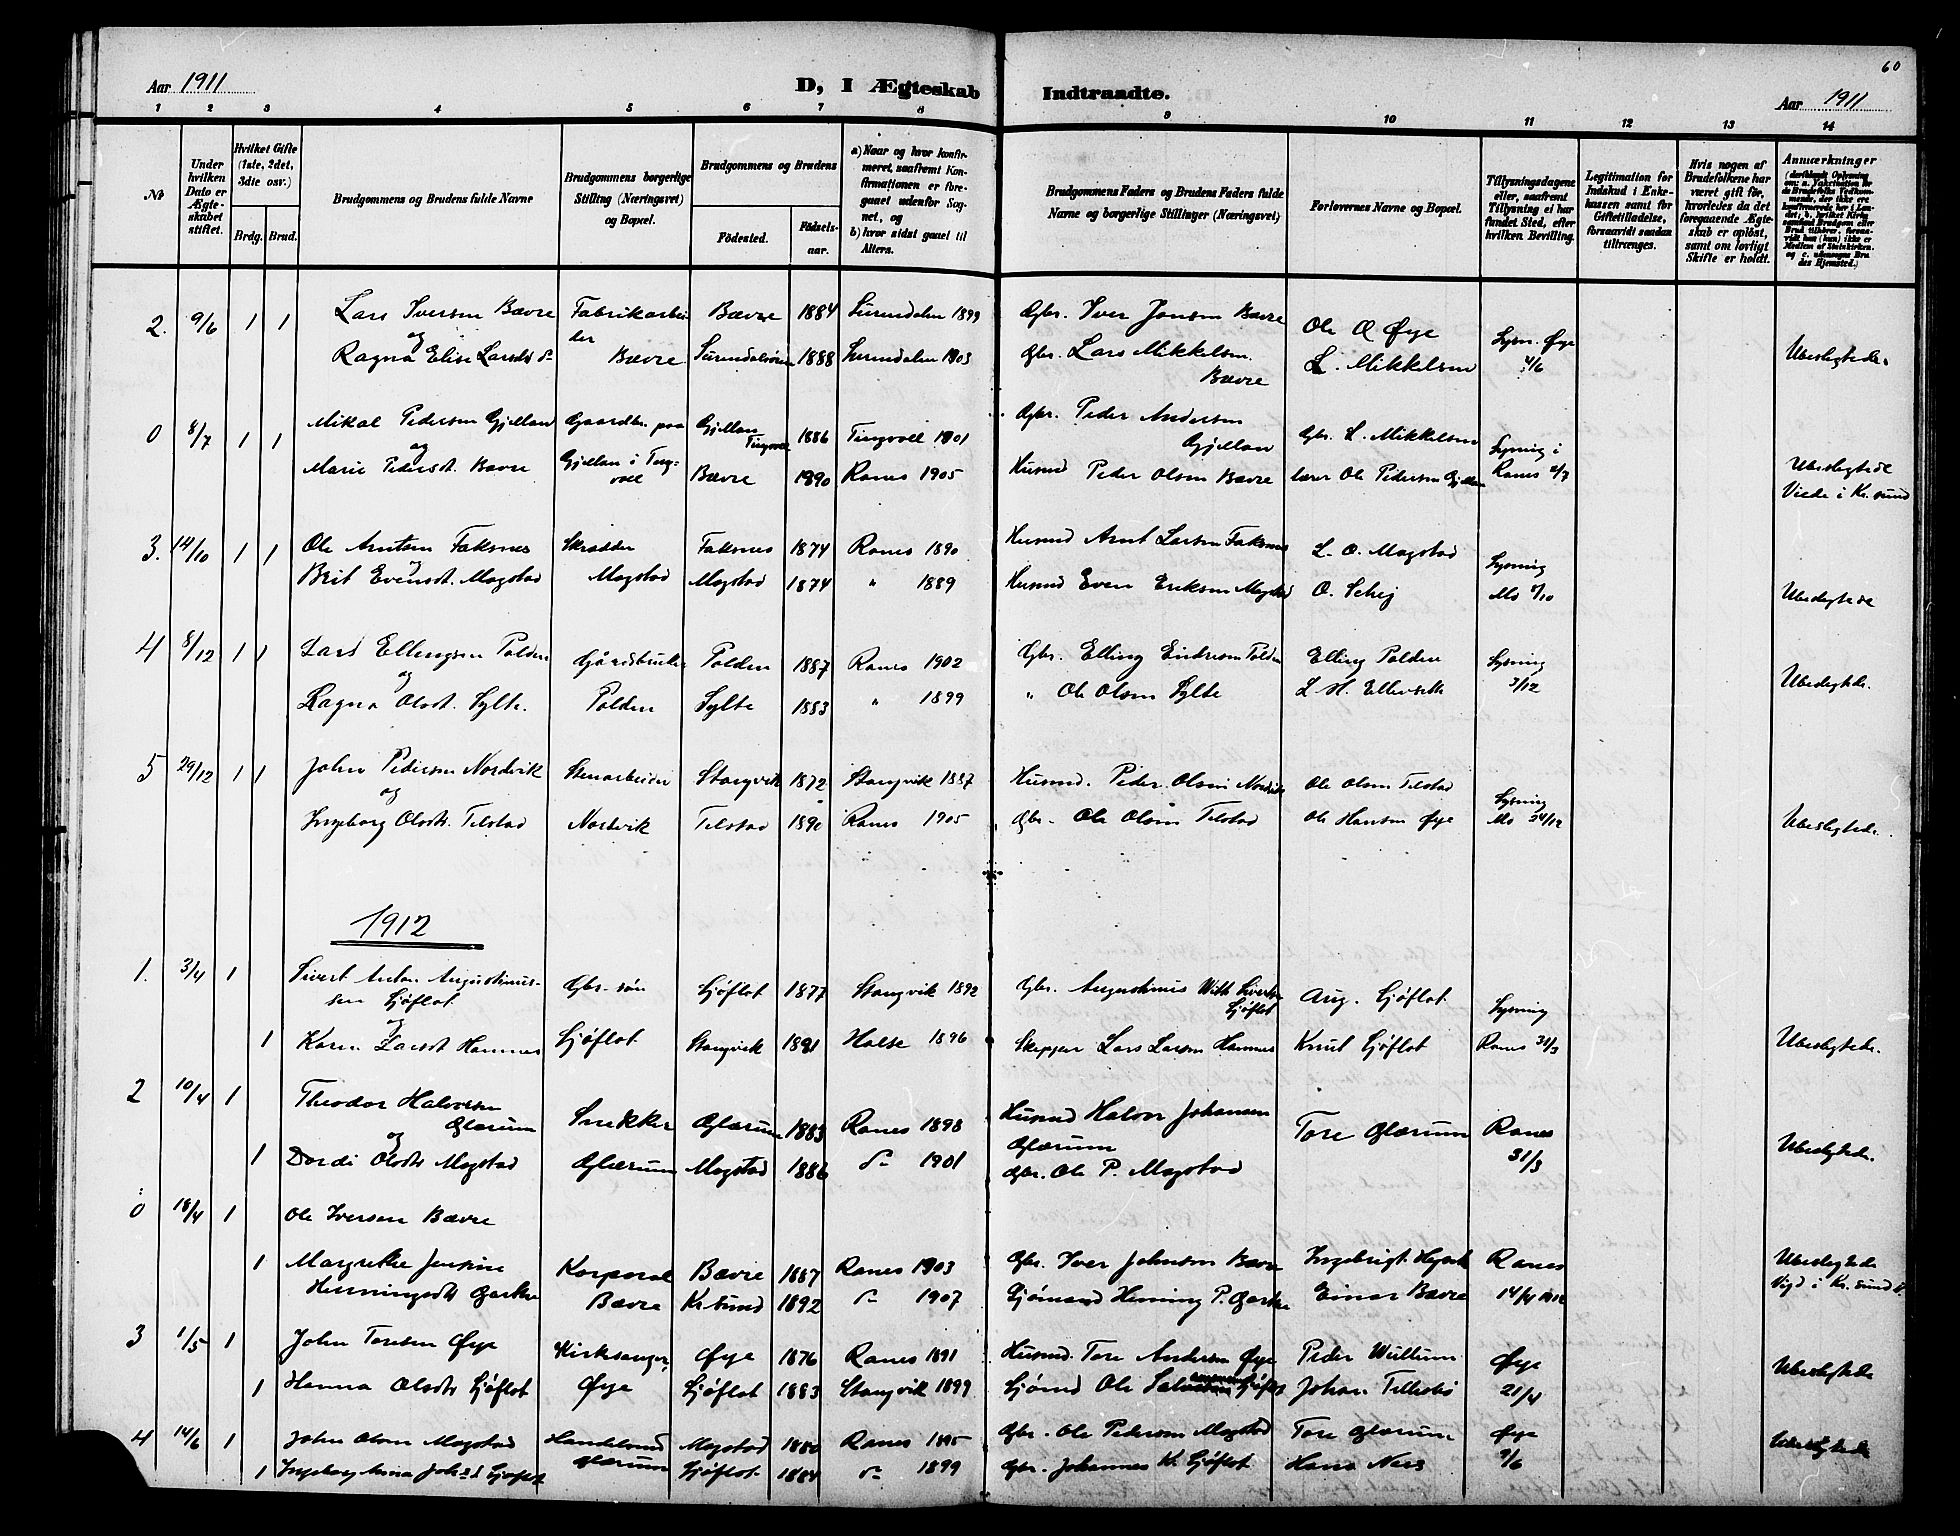 60
Aar 1911
D, I Ægteskab Indtraadte.
Aar 1911
1 2 3 4 5 6 7 8 9 10 11 12 13 14
No
Under hvilken Dato er Ægteskabet stiftet.
Hvilket Gifte (1ste, 2det, 3die osv.)
Brdg. Brud.
Brudgommens og Brudens fulde Navne
Brudgommens borgerlige Stilling (Næringsvei) og Bopæl.
Brudgommens og Brudens
Fødested.
Fødselsaar.
a) Naar og hvor konfirmeret, saafremt Konfirmationen er foregaaet udenfor Sognet, og
b) hvor sidst gaaet til Alters.
Brudgommens Faders og Brudens Faders fulde Navne og borgerlige Stillinger (Næringsvei)
Forlovernes Navne og Bopæl.
Tillysningsdagene eller, saafremt Tillysning ei har fundet Sted, efter hvilken Bevilling.
Legitimation for Indskud i Enkekassen samt for Giftetilladelse, forsaavidt saadan tiltrænges.
Hvis nogen af Brudefolkene har været gift før, hvorledes da det foregaaende Ægteskab er opløst, samt om lovligt Skifte er holdt.
Anmærkninger
2. 9/6 1 1 Lars Iversen Bævre Fabrikarbei Bævre 1884 Surendalen 1899 Gbr. Iver Jonsen Bævre Ole O Øye Lysn. Øye
og der
Ragna Elise Larsdt Bævre 1888 Surendalen 1903 Gbr. Lars Mikkelsen L. Mikkelsen 4/6 Ubeslegtede
Bævre
0 8/7 1 1 Mikal Pedersen Gjellan Gaardbr. paa Gjellan Tingvoll 1886 Tingvoll 1901 Gbr. Peder Andersen Gjellan Gbr. L. Mikkelsen Lysning i
og Gjellan i Ting-
Marie Pedersdt. Bævre voll Bævre 1890 Ranes 1905 Husmd Peder Olsen Bævre lærer Ole Pedersen Gjellan Ranes 2/7 Ubeslegtede
Viede i Kr.sund
3. 14/10 1 1 Ole Arntsen Faksnes Skrædder Faksnes 1874 Ranes 1890 Husmd Arnt Larsen Faksnes L. O. Mogstad Lysning
og
Brit Evensdt. Mogstad Mogstad Mogstad 1874 " 1889 Husmd Even Eriksen Mogstad O. Schei Mo /10 Ubeslegtede
4 8/12 1 1 Lars Ellingsen Polden Gaardbruker Polden 1887 Ranes 1902 Gbr. Elling Endresen Polden Elling Polden Lysning
og
Ragna Olsdt. Sylte. Polden Sylte 1883 " 1899 " Ole Olsen Sylte 3/12 Ubeslegtede.
5 29/12 1 1 John Pedersen Nordvik Stenarbeider Stangvik 1872 Stangvik 1887 Husmd. Peder Olsen Nordvik Ole Olsen Telstad Lysning
og
Ingeborg Olsdtr. Telstad Nordvik Telstad 1890 Ranes 1905 Gbr. Ole Olsen Telstad Ole Hansen Øye Mo 24/12 Ubeslegtede.
1912
1. 3/4 1 Sivert Anton Augustinus- Gbr-søn Sjøflot 1877 Stangvik 1892 Gbr. Augustinus Sivertsen Sjøflot Aug. Sjøflot. Lysning
sen Sjøflot
og
1 Karen Larsdt Hamnes Sjøflot Stangvik 1881 Halse 1896 Skipper Lars Larsen Hamnes Knut Sjøflot Ranes 31/3 Ubeslegtede.
2 10/4 1 Theodor Halvorsen Snekker Glærum 1883 Ranes 1898 Husmd Halvor Johansen Tore Glærum Ranes
Glærum Glærum
og
1 Dordi Olsdtr Mogstad Glærum Mogstad 1886 1901 Gbr. Ole P. Mogstad 31/3 Ubeslegtede.
0 18/4 1 Ole Iversen Bævre
1 Margrethe Jensine Korporal Bævre 1887 Ranes 1903 Gbr. Iver Johnsen Bævre Ranes Ubeslegtede
Henningsdtr Bævre Kr.sund 1892 1907 Sjømand Henning P. Einar Bævre 14/4 1912 Vigd i Kr.sund
3 1/5 1 John Toresen Øye Kirksanger, Øye 1876 Ranes 1891 Husmd. Tore Andersen Øye Peder Wullum Øye
1 Hanna Olsdtr Sjøflot Øye Sjøflot 1883 Stangvik 1899 Sjømd Ole Sjøflot Johan Telleslø 21/4 Ubeslegtede
4 14/6 1 John Olsen Mogstad Handelsmd Mogstad 1880 Ranes 1895 Gbr. Ole Pedersen Mogstad Tore Glærum Øye
1 Ingeborg Anna Sjøflot Glærum Sjøflot 1884 1899 Gbr. Johannes K. Sjøflot Hans Nes 9/6 Ubeslegtede